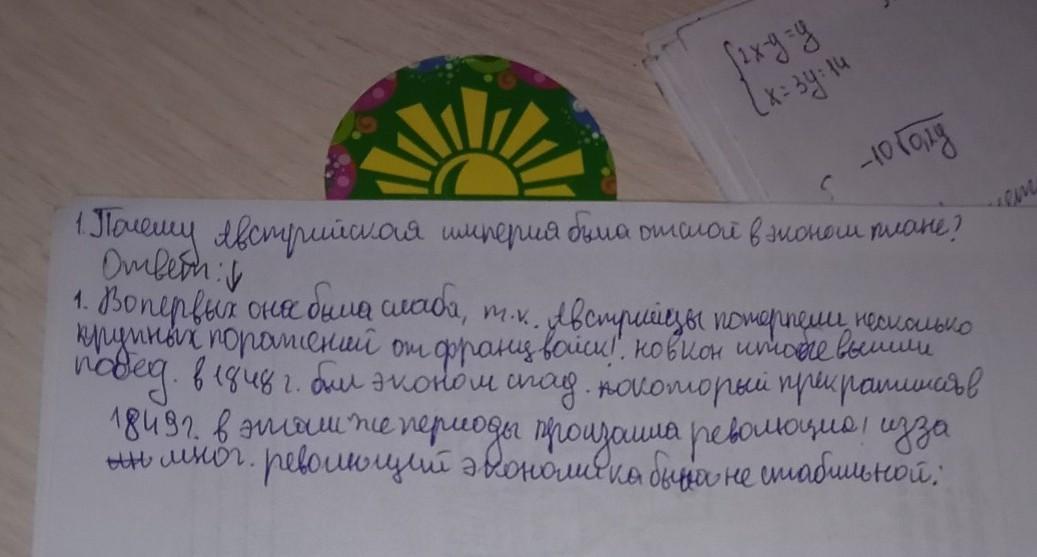 {2x-y=y
x=3y=14
-10√0,2y
1. Почему Австрийская империя была отсталой в эконом плане?
Ответ: ↓
1. Вопервых она была слаба, т.к. Австрийцы потерпели несколько
крупных поражений от франц войск!. но в кон итоге вышли
побед. в 1848 г. был эконом спад. который прекратился в
1849г. в этот же периоды произошла революция! из за
мног. революций экономика была не стабильной.